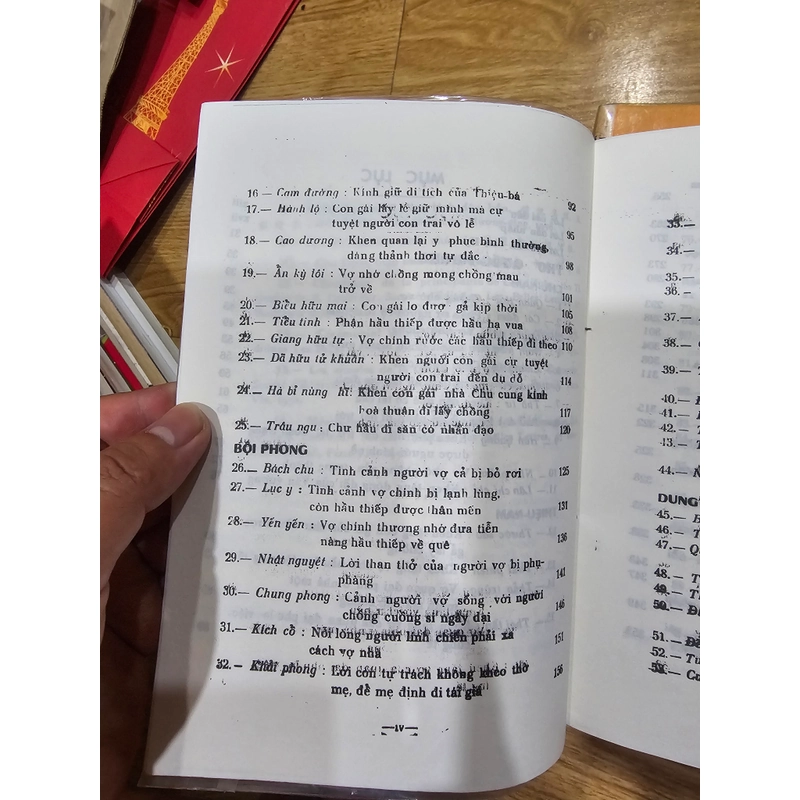 16 — Cam đường : Kính giữ di tích của Thiệu-bá 92
17.— Hành lộ : Con gái lấy lễ giữ mình mà cự
tuyệt người con trai vô lễ 95
18.— Cao dương : Khen quan lại y phục bình thường,
dáng thảnh thơi tự đắc 98
19.— Ân kỳ lôi : Vợ nhớ chồng mong chồng mau
trở về 101
20.— Biểu hữu mai : Con gái lo được gả kịp thời 105
21.— Tiểu tinh : Phận hầu thiếp được hầu hạ vua 108
22.— Giang hữu tự : Vợ chính rước các hầu thiếp đi theo 110
23.— Dã hữu tử khuân : Khen người con gái cự tuyệt
người con trai đến dụ dỗ 114
24.— Hà bỉ nùng hĩ : Khen con gái nhà Chu cung kính
hoà thuận đi lấy chồng 117
25.— Trâu ngu : Chư hầu đi săn có nhân đạo 120
BỘI PHONG
26.— Bách chu : Tình cảnh người vợ cả bị bỏ rơi 125
27.— Lục y : Tình cảnh vợ chính bị lạnh lùng,
còn hầu thiếp được thân mến 131
28.— Yến yến : Vợ chính thương nhớ đưa tiễn
nàng hầu thiếp về quê 136
29.— Nhật nguyệt : Lời than thở của người vợ bị phụ-
phàng 141
30.— Chung phong : Cảnh người vợ sống với người
chồng cuồng si ngây dại 146
31.— Kích cổ : Nỗi lòng người lính chiến phải xa
cách vợ nhà 151
32.— Khải phong : Lời con tự trách không khéo thờ
mẹ, để mẹ định đi tái giá 156
—IV—
33.—
34.—
35.—
36.—
37.—
38.—
39.—
40.—
41.—
42.—
43.—
44.—
DUNG
45.—
46.—
47.—
48.—
49.—
50.—
51.—
52.—
53.—